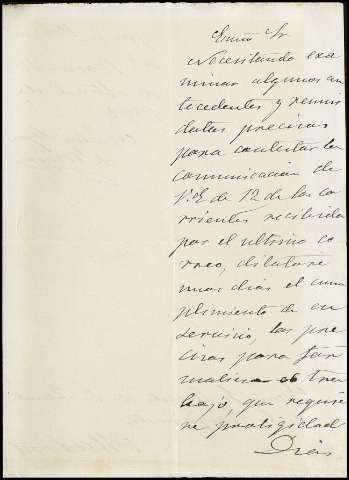 Exmo Sr
Necesitando exa
minar algunos an
tecedentes y reunir
datos precisos
para contestar la
comunicacion de
V.E de 12 de los co
rrientes recibida
por el ultimo co
rreo, dilataré
unos dias el cum
plimiento de su
servicio, los pre
cisos para for
malizar el tra
bajo, que requie
re prolijidad
Dios